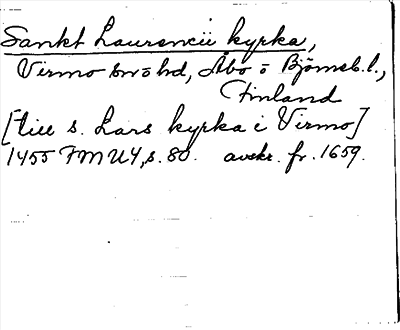 Sankt Laurencii kyrka,
Virmo sn o hd, Åbo o Björneb. l.,
Finland
[till s. Lars kyrka i Virmo]
1455 FMU4, s. 80. avskr. fr. 1659.